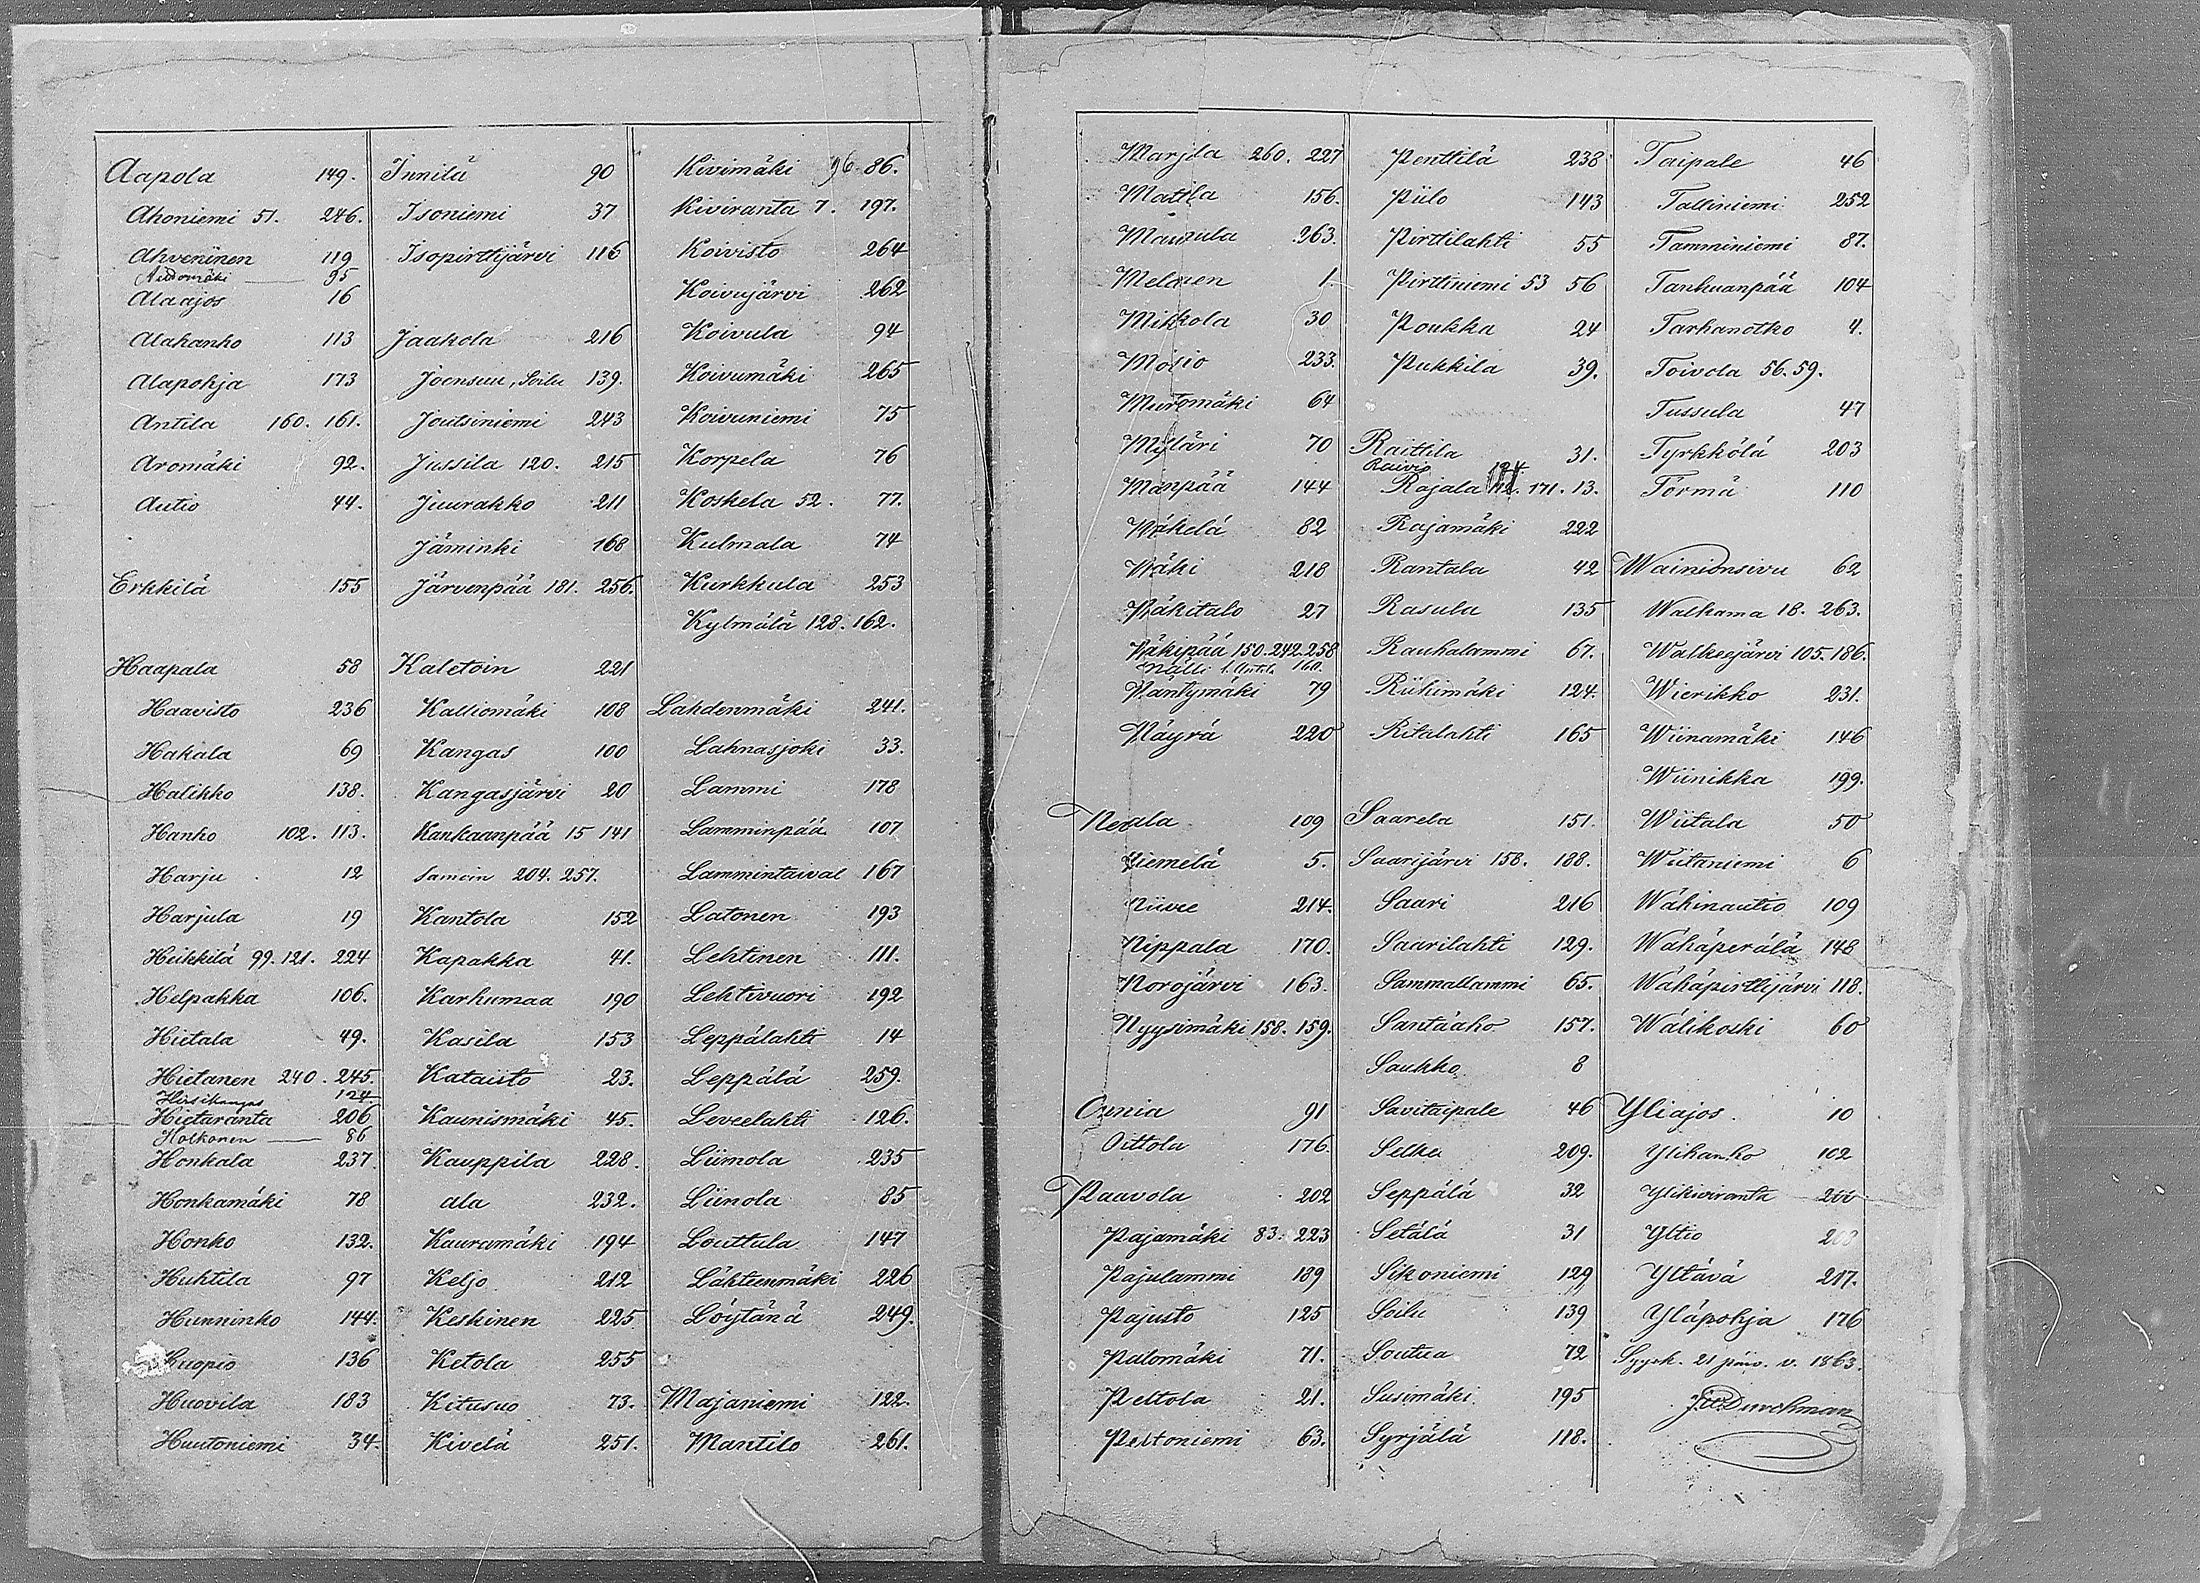 Aapola 149.
Ahoniemi 51. 246.
Ahveninen 119
Aidomäki 95
Alaajos 16
Alahanko 113
Alapohja 173
Antila 160. 161.
Aromäki 92.
Autio 44.
Erkkilä 155
Haapala 58
Haavisto 236
Hakala 69
Halikko 138.
Hanko 102. 113.
Harju 12
Harjula 19
Heikkilä 99. 121. 224
Helpakka 106.
Hietala 49.
Hietanen 240. 245.
Hirsikangas 124
Hietaranta 206
Holkonen 86
Honkala 237
Honkamäki 78
Honko 132.
Huhtila 97
Hunninko 144.
Kuopio 136
Huovila 183
Huutoniemi 34.
Innilä 90
Isoniemi 37
Isopirttijärvi 116
Jaakola 216
Joensuu, Soilu 139.
Joutsiniemi 243
Jussila 120. 215
Juurakko 211
Jäminki 168
Järvenpää 181. 256.
Kaletoin 221
Kalliomäki 108
Kangas 100
Kangasjärvi 20
Kankaanpää 15 141
Samoin 204. 257.
Kantola 152
Kapakka 41.
Karhumaa 190
Kasila 153
Kataisto 23.
Kaunismäki 45.
Kauppila 228.
ala 232.
Kauramäki 194
Keljo 212
Keskinen 225
Ketola 255
Kitusuo 73.
Kivelä 251.
Kivimäki 96. 86.
Kiviranta 7. 197.
Koivisto 264
Koivujärvi 262
Koivula 94
Koivumäki 265
Koivuniemi 75
Korpela 76
Koskela 52. 77.
Kulmala 74
Kurkkula 253
Kylmälä 128. 162.
Lahdenmäki 241.
Lahnasjoki 33.
Lammi 178
Lamminpää 107
Lammintaival 167
Latonen 193
Lehtinen 111.
Lehtivuori 192
Leppälahti 14
Leppälä 259.
Leveelahti 126.
Liimola 235
Liinola 85
Louttula 147
Lähteenmäki 226
Löytänä 249.
Majaniemi 122.
Mantilo 261.
Marjla 260. 227
Mattla 156.
Maupula 263.
Melanen 1.
Mikkola 30
Mosio 233.
Muromäki 64
Myläri 70
Mänpää 144
Mäkelä 82
Mäki 218
Mäkitalo 27
Mäkipää 150. 242. 258
Mälli l. Antila 160.
Mäntymäki 79
Mäyrä 220
Nevala 109
Niemelä 5.
Niive 214.
Nippala 170.
Norojärvi 163.
Nyysimäki 158. 159.
Oinia 91
Oittola 176.
Paavola 202
Pajamäki 83. 223
Pajulammi 189
Pajusto 125
Palomäki 71.
Peltola 21.
Peltoniemi 63.
Penttilä 238
Piilo 143
Pirttilahti 55
Pirttiniemi 53 56
Poukka 24
Pukkila 39.
Raittila 31.
Raivio 124.
Rajala 171. 13.
Rajamäki 222
Rantala 42
Rasula 135
Rauhalammi 67.
Riihimäki 124.
Ritalahti 165
Saarela 151.
Saarijärvi 158. 188.
Saari 216
Saarilahti 129.
Sammallammi 65.
Santaaho 157.
Saukko 8
Savitaipale 46
Selke 209.
Seppälä 32
Setälä 31
Sikoniemi 129
Soilu 139
Soutua 72
Susimäki 195
Syrjälä 118.
Taipale 46
Talliniemi 252
Tamminiemi 87.
Tanhuanpää 104
Tarhanotko 4.
Toivola 56. 59.
Tussula 47
Tyrkkölä 203
Törmä 110
Wainionsivu 62
Walkama 18. 263.
Walkeejärvi 105. 186.
Wierikko 231.
Wiinamäki 146
Wiinikka 199.
Wiitala 50
Wiitaniemi 6
Wähinautio 109
Wähäperälä 148
Wähäpirttijärvi 118.
Wälikoski 60
Yliajos 10
Ylihanko 102
Ylikiviranta 200
Yltio 208
Yltävä 217.
Yläpohja 176
Syysk. 21 päiv. v. 1863.
J. W. Durchman